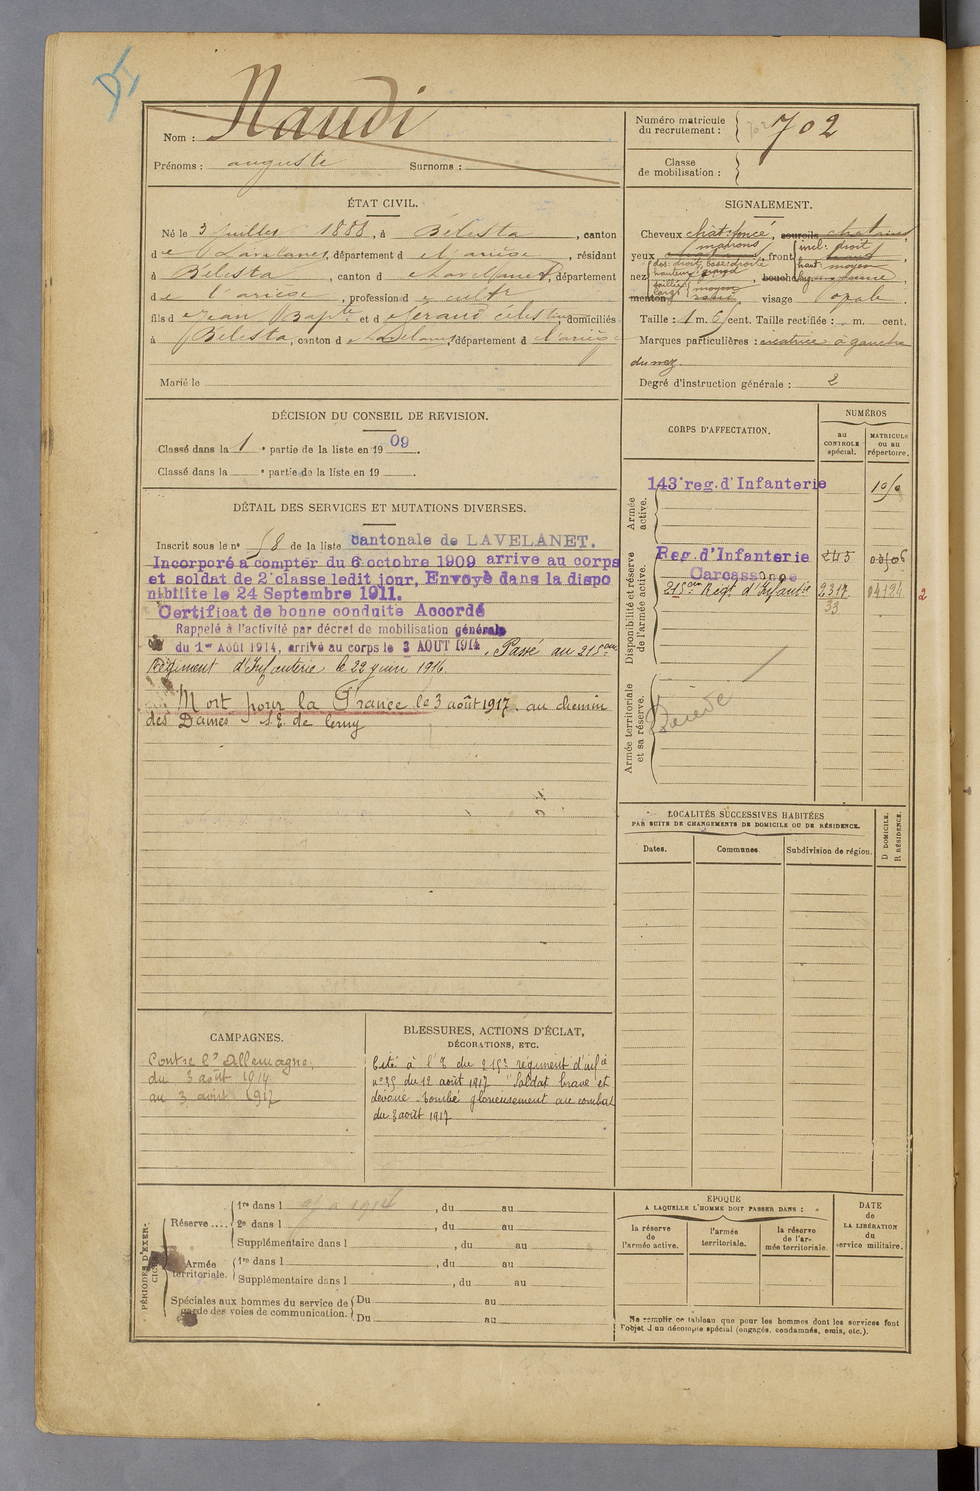 Naudi
Nom :
Prénoms : auguste Surnoms :
Numéro matricule
du recrutement : 702
Classe
de mobilisation :
ÉTAT CIVIL.
Né le 3 juillet 1888, à Bélesta, canton
de Lavelanet, département d l'ariège, résidant
à Bélesta, canton d Lavelanet, département
de l'ariège, profession de cultr
fils d Jean Bapte et d célestine, domiciliés
à Bélesta, canton d Lavelanet, département d l'ariège
Marié le
SIGNALEMENT.
Cheveux chât: foncé, sourcils chatains
marrons incl: droit
yeux , front
dos: droit, base: droite haut: moyen
hauteur: grand
nez , bouche moyenne
saillie: moyen
larg:
menton , visage ovale.
Taille : 1 m. 6 cent. Taille rectifiée : m. cent.
Marques particulières : cicatrice à gauche
du nez
Degré d'instruction générale : 2
DÉCISION DU CONSEIL DE REVISION.
Classé dans la 1 e partie de la liste en 1909.
Classé dans la e partie de la liste en 19 .
CORPS D'AFFECTATION.
NUMÉROS
au
CONTROLE
spécial.
MATRICULE
ou au
répertoire.
Armée
active.
143e reg. d'Infanterie
Disponibilité et réserve
de l'armée active.
Reg. d'Infanterie 245
Carcassonne
215eme Regt d'Infanterie 2317 04124 2
33
Armée territoriale
et sa réserve.
DÉTAIL DES SERVICES ET MUTATIONS DIVERSES.
Inscrit sous le n° 58 de la liste cantonale de LAVELANET.
Incorporé à compter du 6 octobre 1909 arrivé au corps
et soldat de 2e classe ledit jour, Envoyé dans la dispo
nibilité le 24 Septembre 1911.
Certificat de bonne conduite Accordé
Rappelé à l'activité par décret de mobilisation générale
du 1er Août 1914, arrivé au corps le 3 AOUT 1914, Passé au 215eme
Régiment d'Infanterie le 22 juin 1916.
Mort pour la France le 3 août 1917. au chemin
des Dames S.E. de Cerny
LOCALITÉS SUCCESSIVES HABITÉES
PAR SUITE DE CHANGEMENTS DE DOMICILE OU DE RÉSIDENCE.
Dates.
Communes.
Subdivision de région.
D DOMICILE.
R RÉSIDENCE.
CAMPAGNES.
Contre l'Allemagne,
du 3 août 1914
au 3 août 1917
BLESSURES, ACTIONS D'ÉCLAT,
DÉCORATIONS, ETC.
Cité à l'O du 215e régiment d'infie
n°35 du 12 août 1917 "Soldat brave et
dévoué tombé glorieusement au combat
du 3 août 1917
PÉRIODES D'EXER-
CICES
Réserve .... 1re dans l , du au
2e dans l , du au
Supplémentaire dans l , du au
Armée
territoriale. 1re dans l , du au
Supplémentaire dans l , du au
Spéciales aux hommes du service de
garde des voies de communication. Du au
Du au
EPOQUE
A LAQUELLE L'HOMME DOIT PASSER DANS :
la réserve
de
l'armée active.
l'armée
territoriale.
la réserve
de l'ar-
mée territoriale.
DATE
de
LA LIBÉRATION
du
service militaire.
Ne remplir ce tableau que pour les hommes dont les services font
l'objet d'un décompte spécial (engagés, condamnés, omis, etc.).